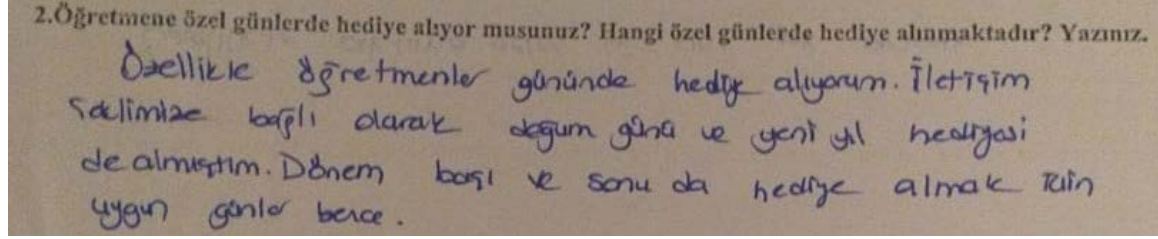 2.Öğretmene özel günlerde hediye alıyor musunuz? Hangi özel günlerde hediye alınmaktadır? Yazınız.
Özellikle öğretmenler gününde hediye alıyorum. İletişim
şeklimize bağlı olarak doğum günü ve yeni yıl hediyesi
de almıştım. Dönem başı ve sonu da hediye almak için
uygun günler bence.